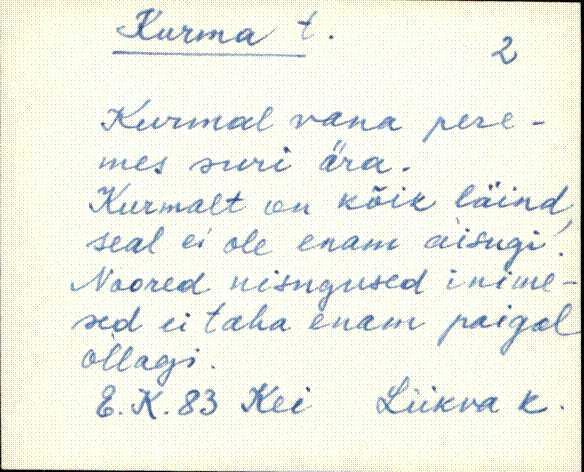 Kurma t.
2
Kurmal vana pere-
mes suri ära.
Kurmalt on kõik läind,
seal ei ole enam
Noored nisugused inime-
sed ei taha enam paigal
õllagi.
E.K. 83 Kei Liikva k.